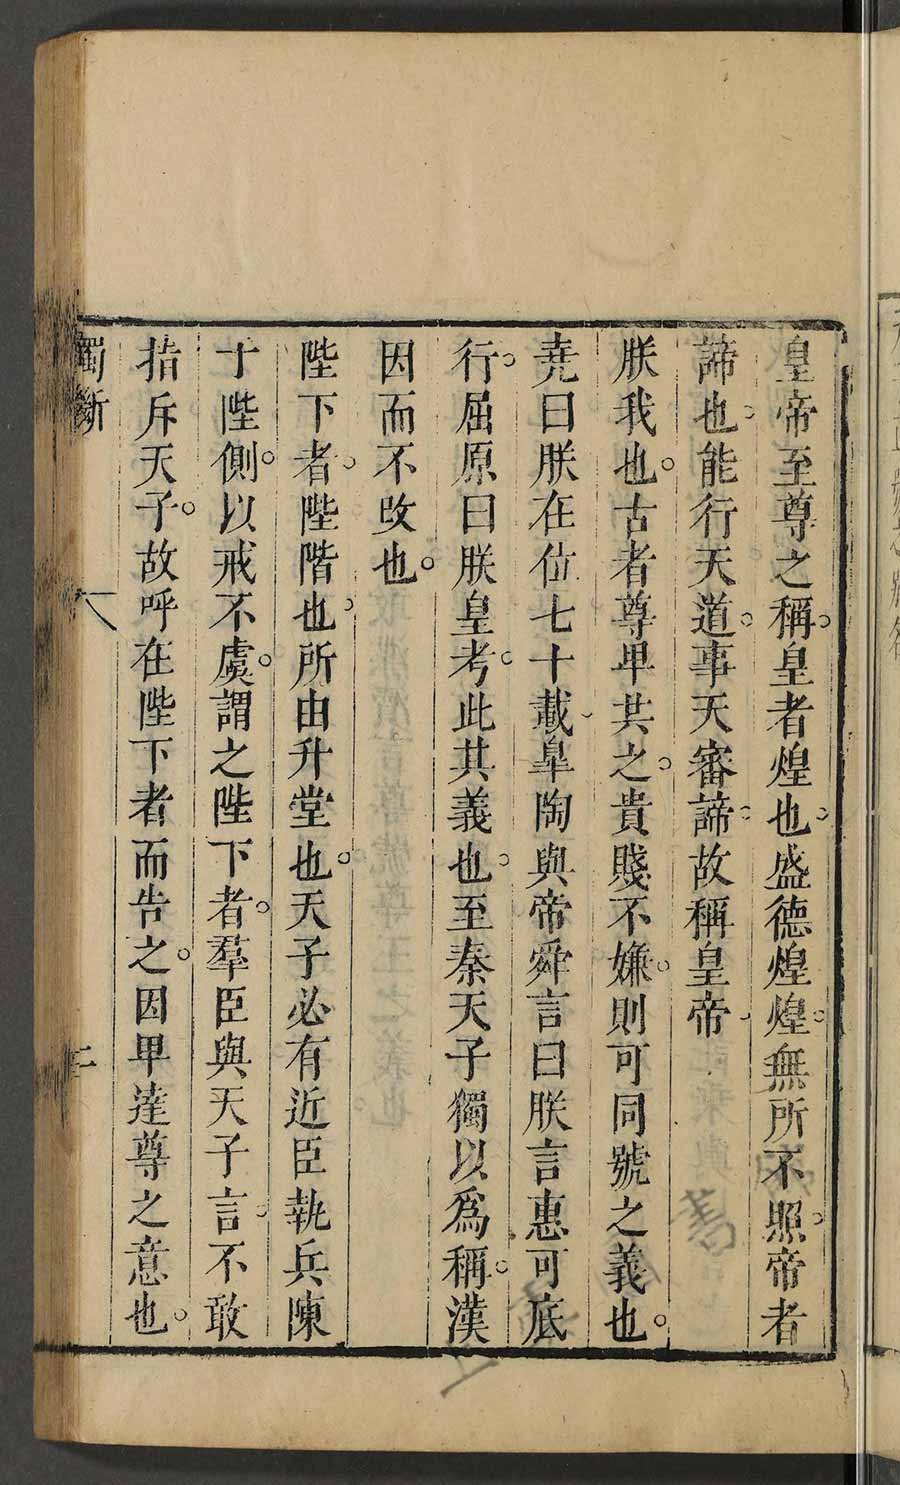 皇帝至尊之稱皇者煌也盛德煌煌無所不照帝者
諦也能行天道事天審諦故稱皇帝
朕我也古者尊卑共之貴賤不嫌則可同號之義也
堯曰朕在位七十載皐陶與帝舜言曰朕言惠可底
行屈原曰朕皇考此其義也至秦天子獨以爲稱漢
因而不改也
陛下者陛階也所由升堂也天子必有近臣執兵陳
于陛側以戒不虞謂之陛下者羣臣與天子言不敢
指斥天子故呼在陛下者而告之因卑達尊之意也
獨斷